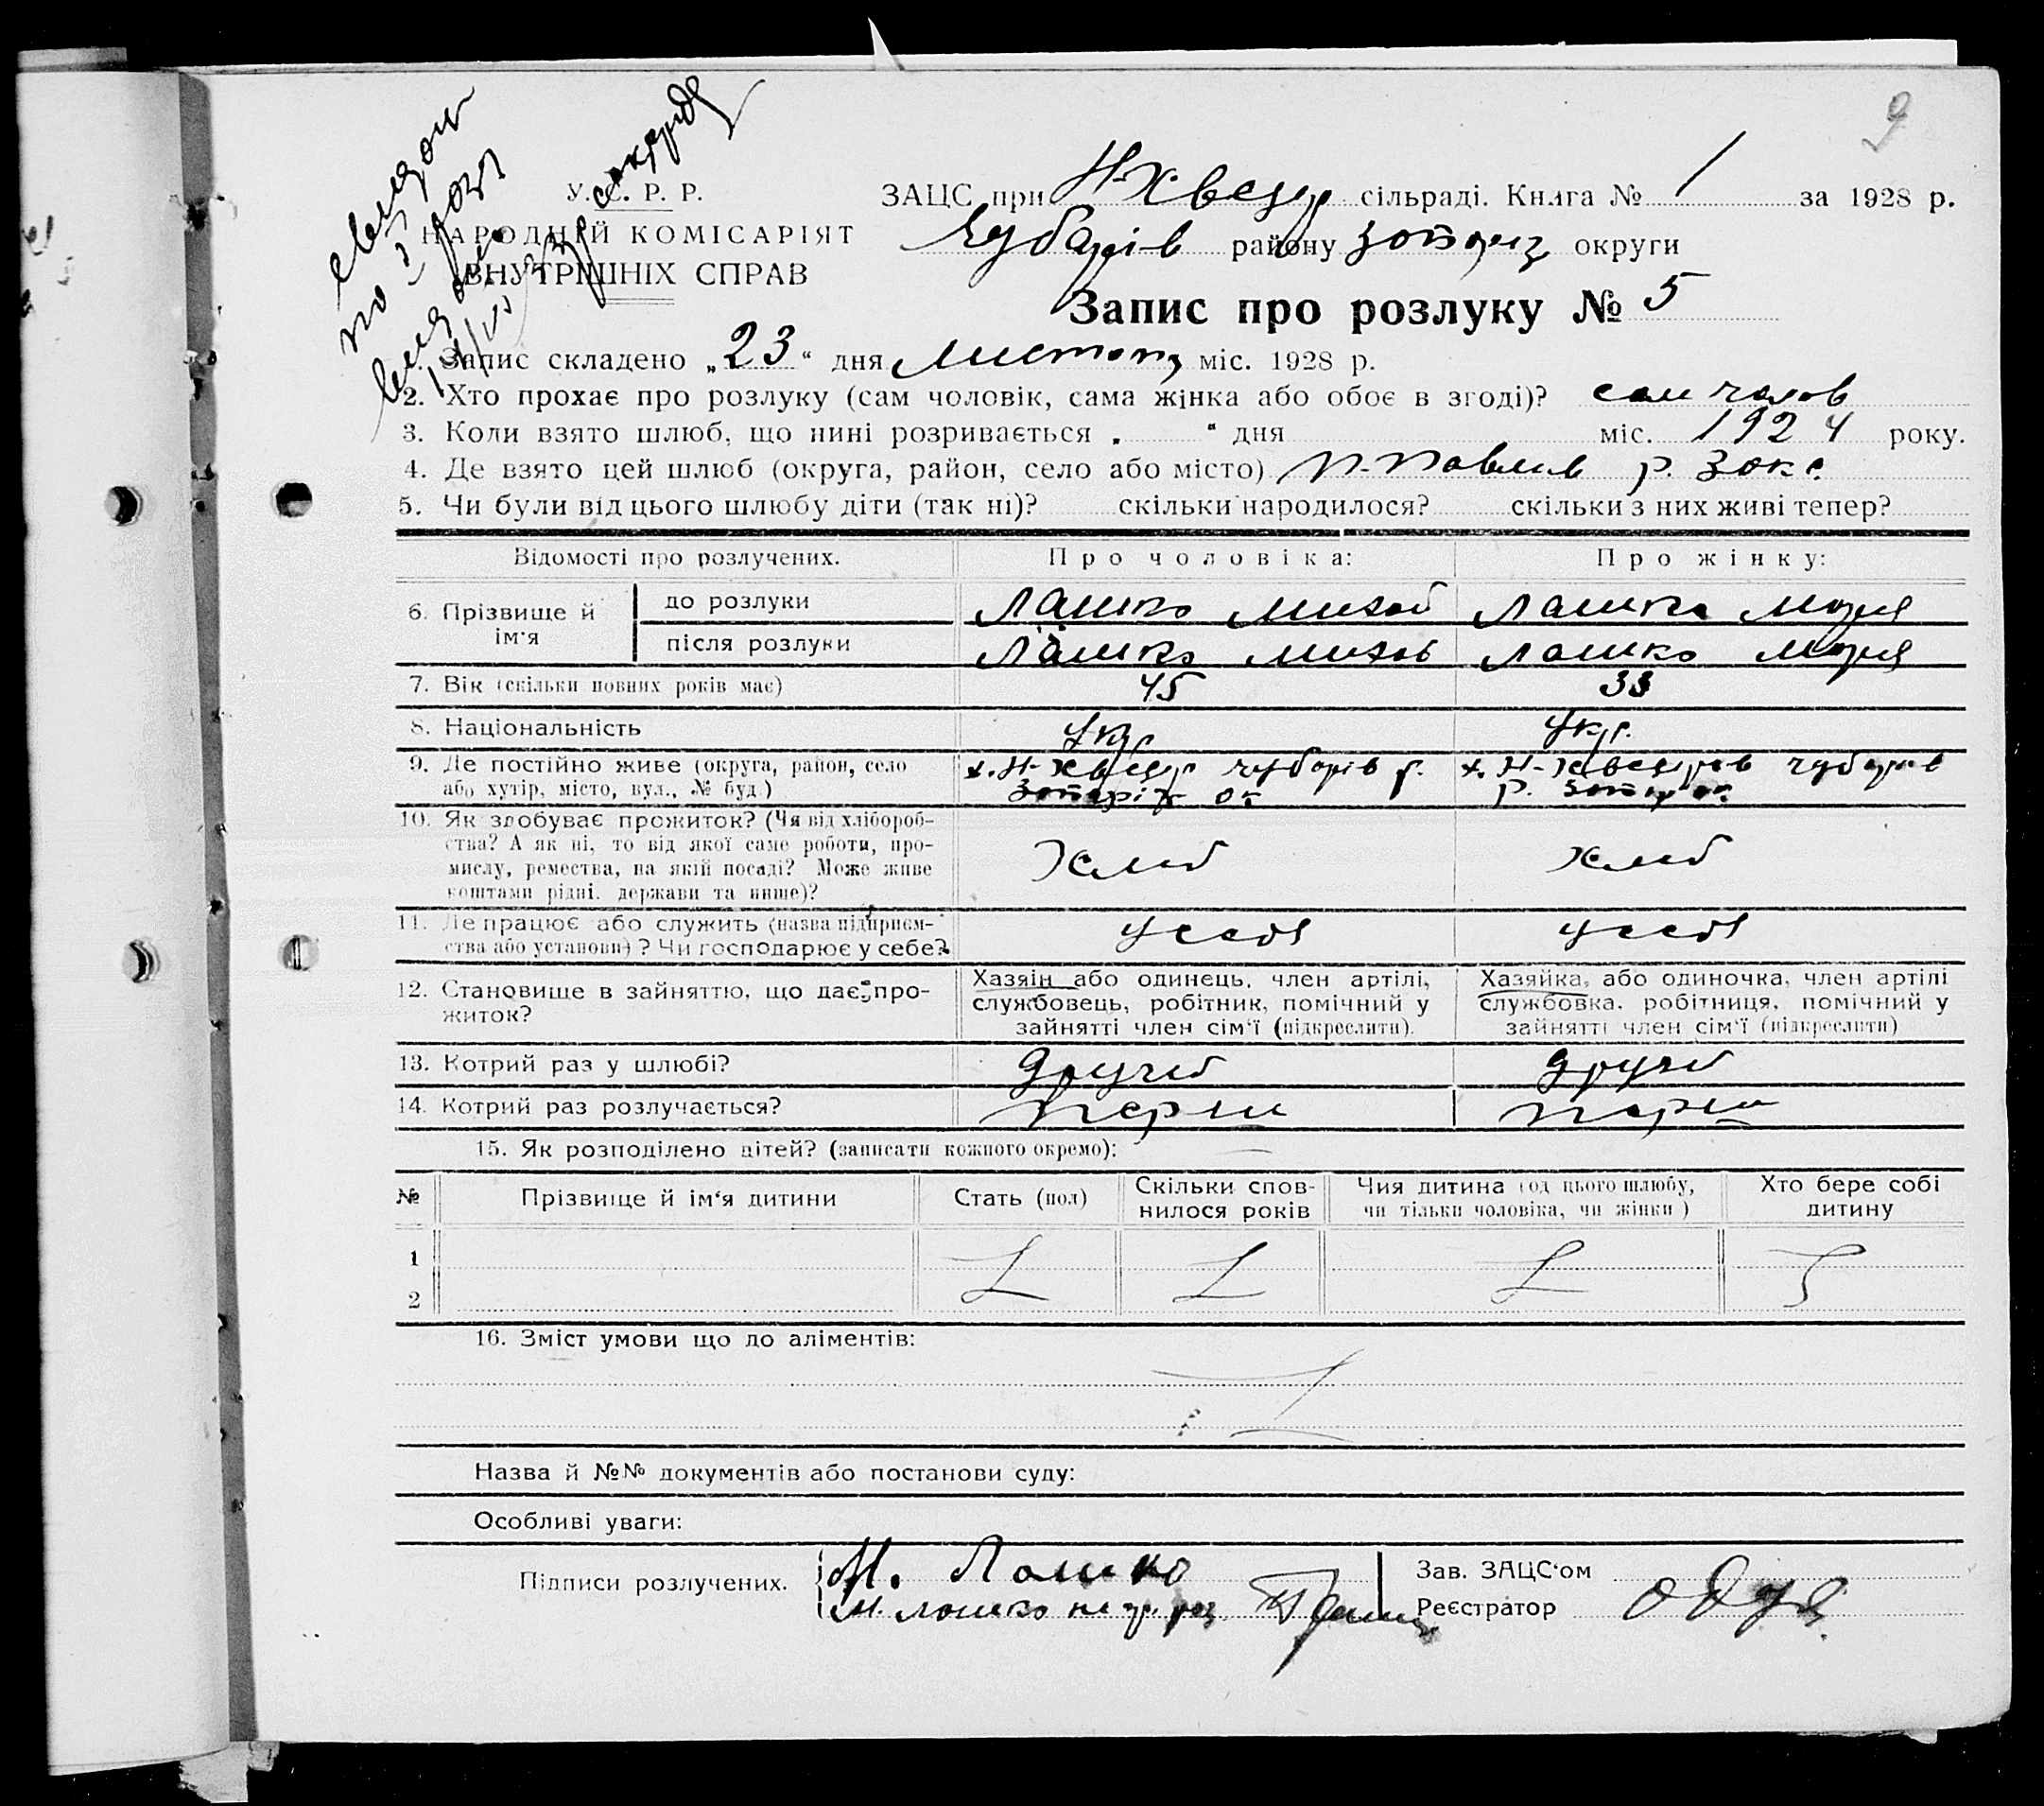 9
У. С. Р. Р.
НАРОДНІЙ КОМІСАРІЯТ
ВНУТРІШНІХ СПРАВ
ЗАЦС при Н-Хвещр сільраді. Книга № 1 за 1928 р.
Чубарів району Запоріз округи
Запис про розлуку № 5
1. Запис складено „23“ дня Листоп міс. 1928 р.
2. Хто прохає про розлуку (сам чоловік, сама жінка або обоє в згоді)? сам чолов
3. Коли взято шлюб, що нині розривається „ “ дня міс. 1924 року.
4. Де взято цей шлюб (округа, район, село або місто) п-павлив р. Зок.
5. Чи були від цього шлюбу діти (так ні)? скільки народилося? скільки з них живі тепер?
Відомості про розлучених. Про чоловіка: Про жінку:
6. Прізвище й ім'я
до розлуки Лашко Михай Лашко Мария
після розлуки Лашко Михай Лашко Мария
7. Вік (скільки повних років має) 45 33
8. Національність Укр Укр.
9. Де постійно живе (округа, район, село х. Н-Хвещр чубарів р. х. Н-Хвещрів чубарів
або хутір, місто, вул., № буд.) Запоріж ок р.
10. Як здобуває прожиток? (Чи від хлібороб-
ства? А як ні, то від якої саме роботи, про-
мислу, ремества, на якій посаді? Може живе Хлиб хлиб
коштами рідні, держави та инше)?
11. Де працює або служить (назва підприєм- У себя У себя
ства або установи)? Чи господарює у себе?
12. Становище в зайняттю, що дає про-
житок?
Хазяїн або одинець, член артілі,
службовець, робітник, помічний у
зайнятті член сім'ї (підкреслити).
Хазяйка, або одиночка, член артілі
службовка, робітниця, помічний у
зайнятті член сім'ї (підкреслити)
13. Котрий раз у шлюбі? другий другий
14. Котрий раз розлучається? перш перш
15. Як розподілено дітей? (записати кожного окремо): —
№ Прізвище й ім'я дитини Стать (пол) Скільки спов-нилося років Чия дитина (од цього шлюбу, чи тільки чоловіка, чи жінки) Хто бере собі дитину
1
2
16. Зміст умови що до аліментів:
Назва й №№ документів або постанови суду:
Особливі уваги:
Підписи розлучених. М. Лашко
М. Лашко
Зав. ЗАЦС'ом
Реєстратор